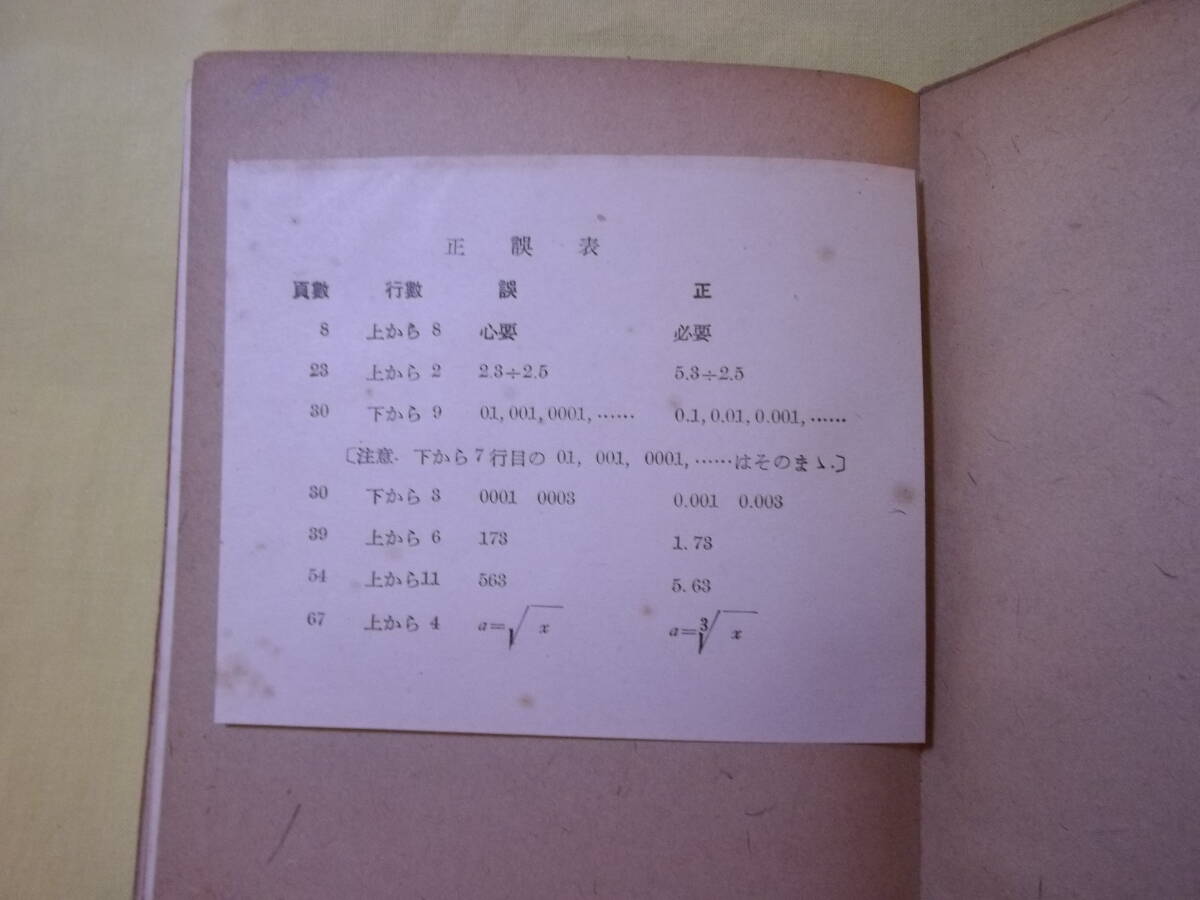 正誤表
頁數 行數 誤 正
8 上から 8 心要 必要
23 上から 2 2.3÷2.5 5.3÷2.5
30 下から 9 01, 001, 0001, …… 0.1, 0.01, 0.001, ……
〔注意. 下から7行目の 01, 001, 0001, ……はそのまゝ.〕
30 下から 3 0001 0003 0.001 0.003
39 上から 6 173 1.73
54 上から11 563 5.63
67 上から 4 a=√x a=∛x